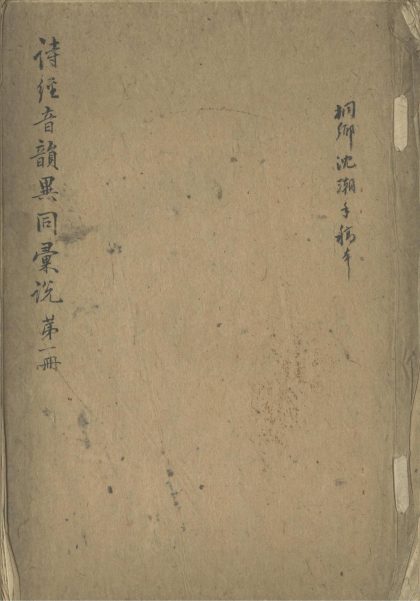 桐鄉沈潮手稿本
詩經音韻異同彙說 第一冊